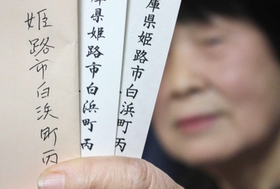 庫県姫路市白浜町丙
庫県姫路市白浜町丙
姫路市白浜町丙